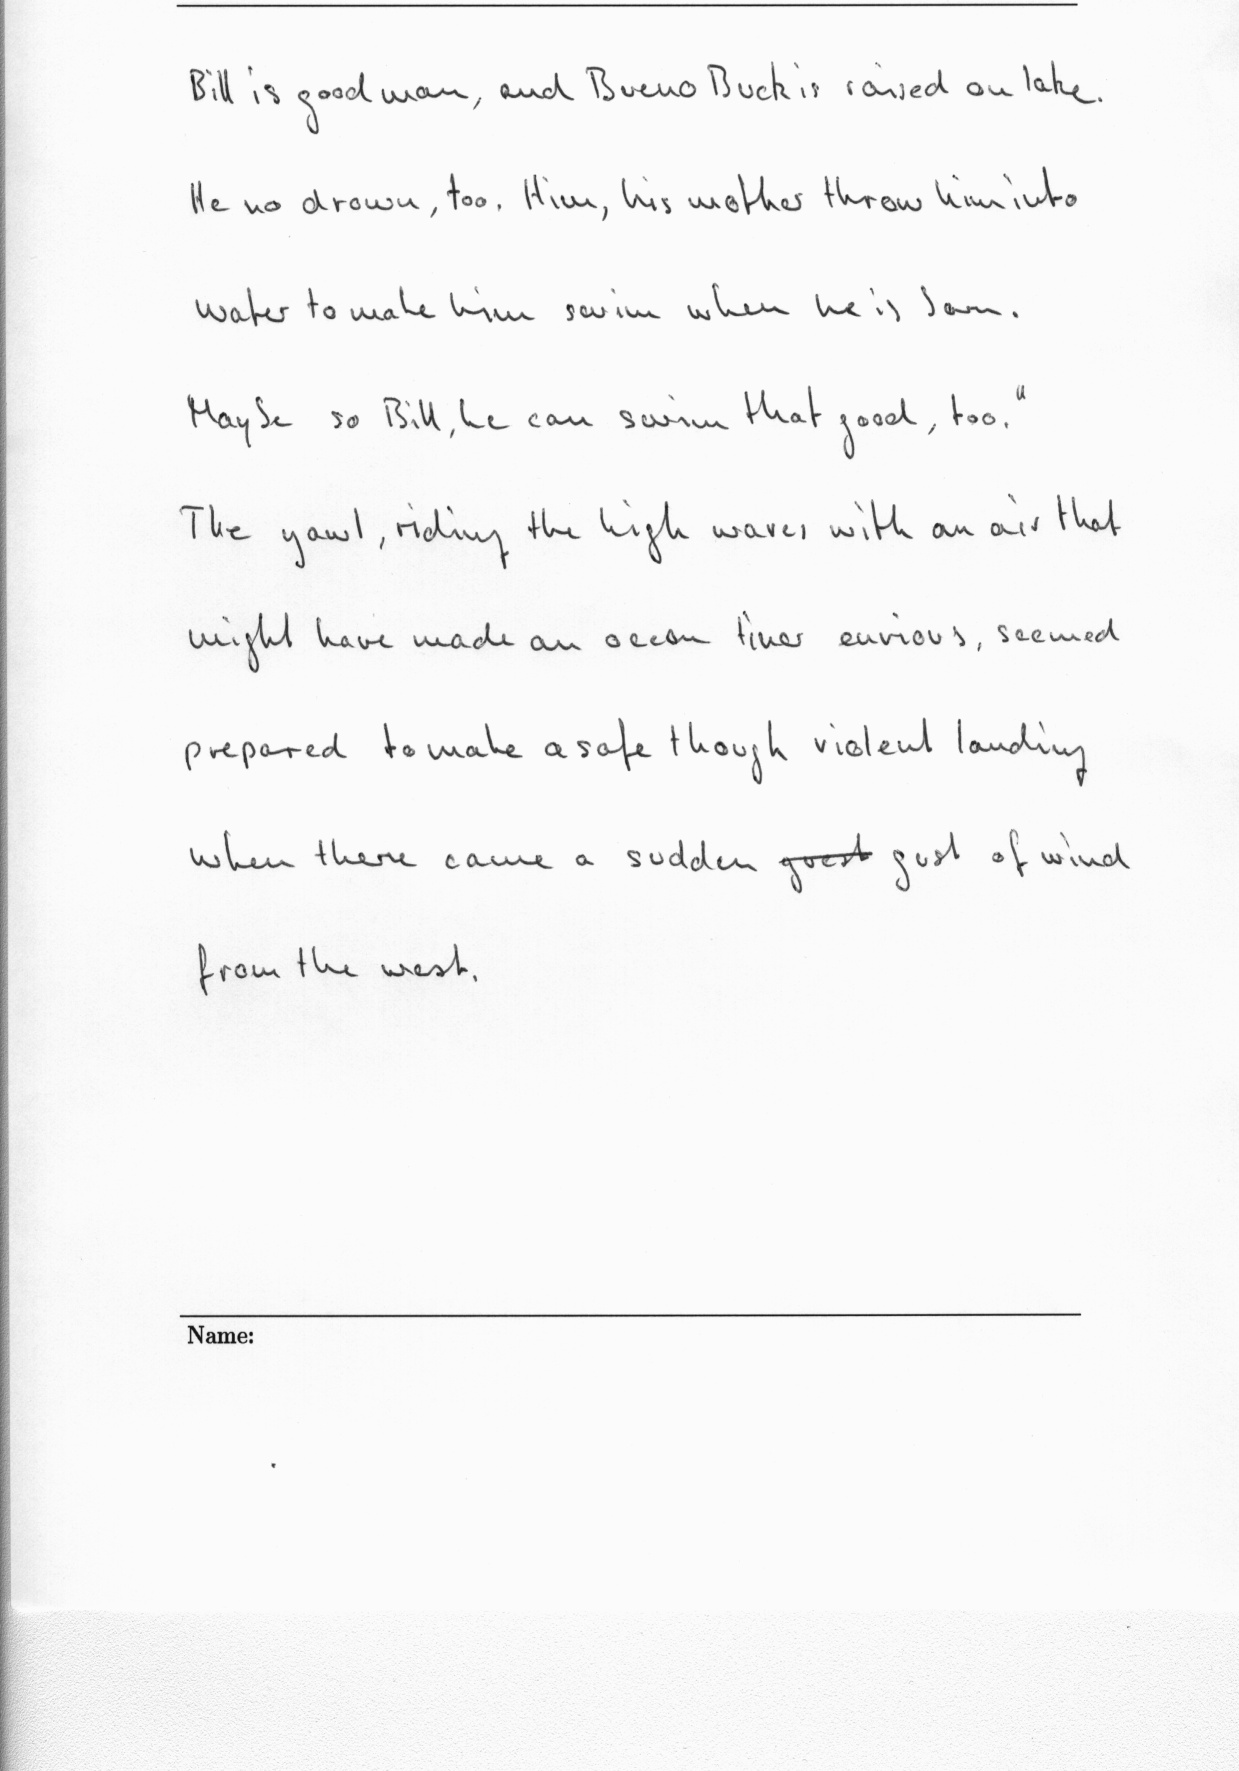 Bill is good man, and Bueno Buck is raised on lake.
He no drown, too. Him, his mother throw him into
water to make him swim when he is born.
Maybe so Bill, he can swim that good, too."
The yawl, riding the high waves with an air that
might have made an ocean liner envious, seemed
prepared to make a safe though violent landing
when there came a sudden guest gust of wind
from the west.
Name: